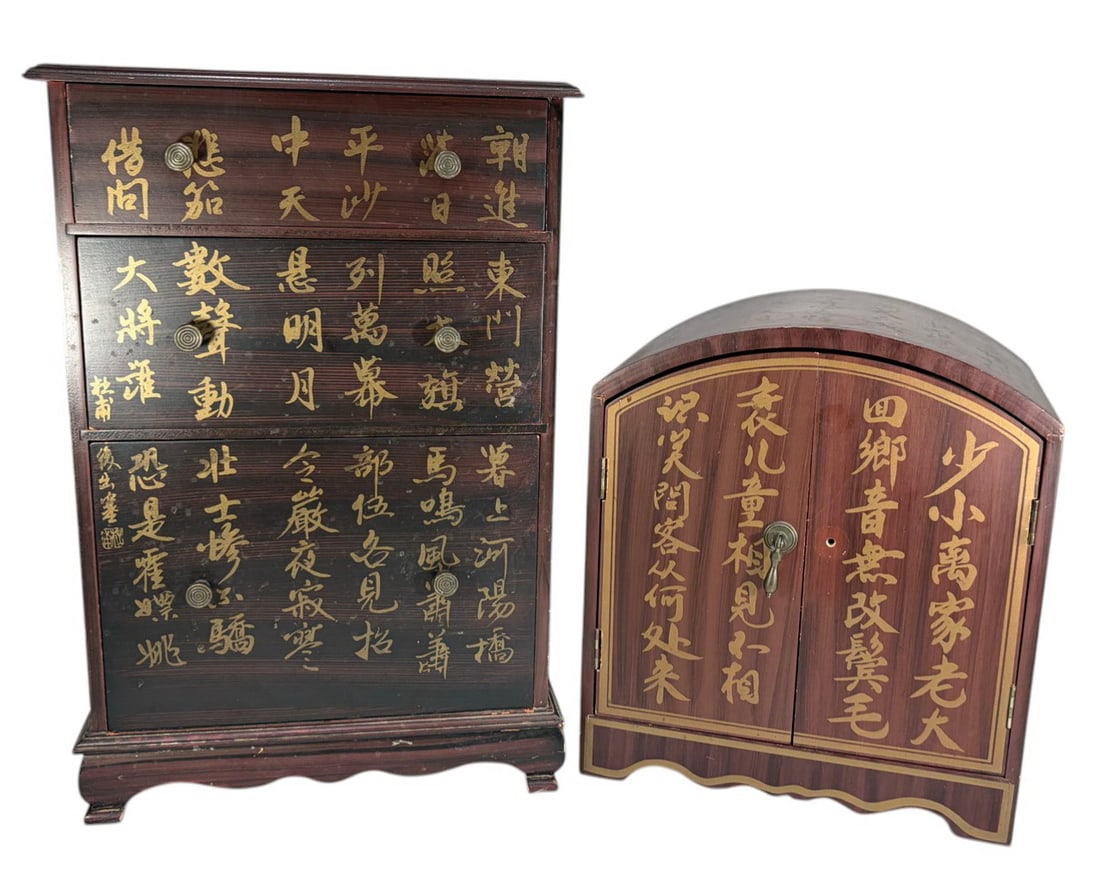 朝進東門營暮上河陽橋
落日照大旗馬鳴風蕭蕭
平沙列萬幕部伍各見招
中天悬明月令嚴夜寂寥
悲笳數聲動壯士慘不驕
借問大將誰恐是霍嫖姚
杜甫後出塞
少小离家老大
回鄉音無改鬢毛
衰儿童相見不相
识笑问客从何处来